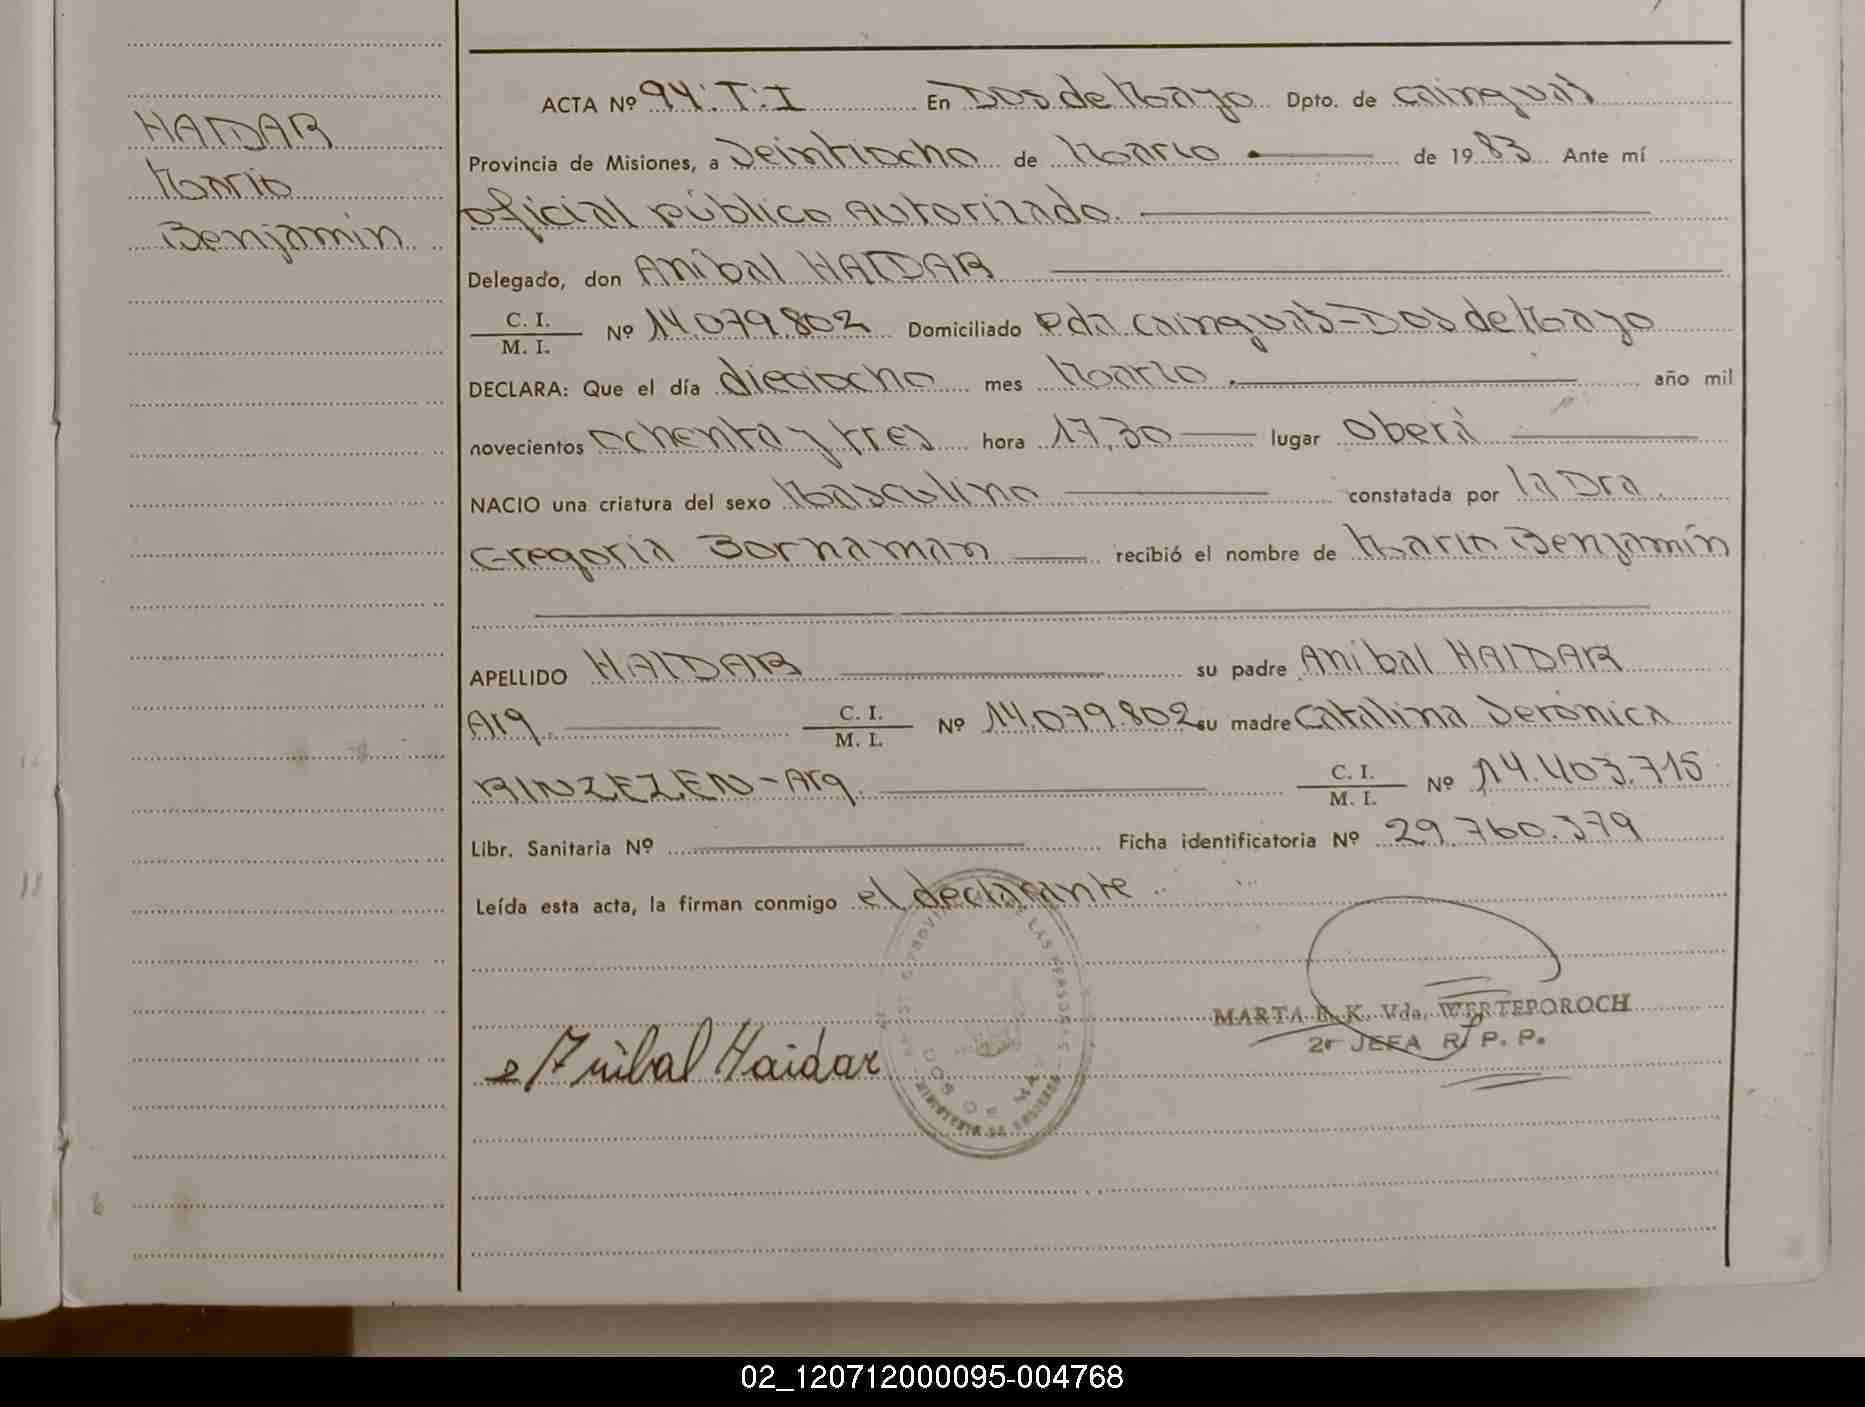 HAIDAR
Mario
Benjamín
ACTA Nº 94:T:I En Dos de Mayo Dpto. de Cainguás
Provincia de Misiones, a Veintiocho de Marzo de 1983 Ante mí
oficial público Autorizado.
Delegado, don Aníbal HAIDAR
C. I. / M. I. Nº 14.079.802 Domiciliado Pda Cainguás-Dos de Mayo
DECLARA: Que el día dieciocho mes Marzo año mil
novecientos ochenta y tres hora 17,30 lugar Oberá
NACIO una criatura del sexo Masculino constatada por la Dra.
Gregoria Bornaman recibió el nombre de Mario Benjamín
APELLIDO HAIDAR su padre Aníbal HAIDAR
Arg. C. I. / M. I. Nº 14.079.802 su madre Catalina Verónica
RINZEZEN-Arg. C. I. / M. I. Nº 14.403.715
Libr. Sanitaria Nº Ficha identificatoria Nº 29.760.379
Leída esta acta, la firman conmigo el declarante.
Aníbal Haidar
MARTA E. K. Vda. WERTEPOROCH
2ª JEFA R. P. P.
DOS DE MA
02_120712000095-004768